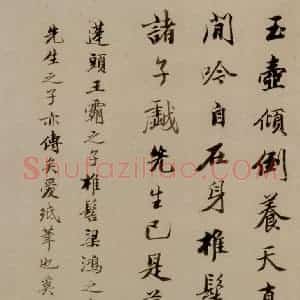 玉壺傾倒養天真
閒吟自在身椎髻
諸子戲先生已是
蓬頭王霸之子椎髻梁鴻之
先生之子亦傳矣愛紙筆也
Shufazidiao.com